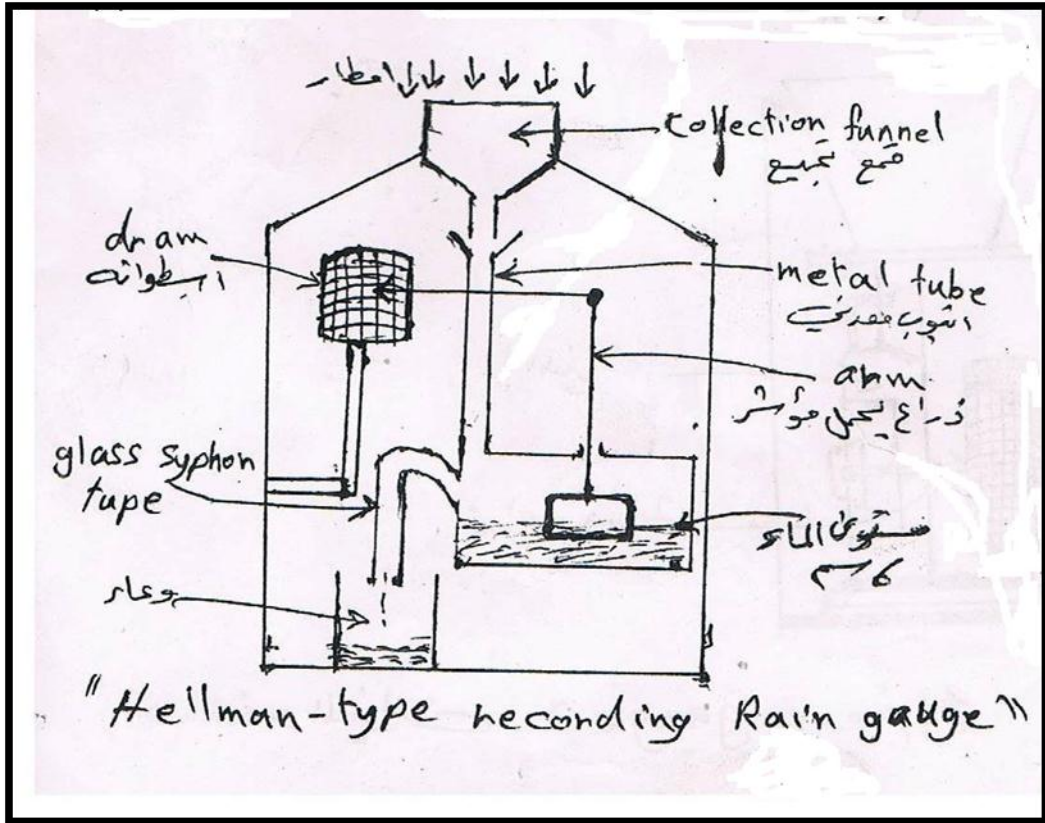 امطار
collection funnel
قمع تجميع
dram
اسطوانه
metal tube
انبوب معدني
arm
ذراع يحمل مؤشر
glass syphon
tupe
مستوى الماء
وعاء
"Hellman-type reconding Rain gauge"